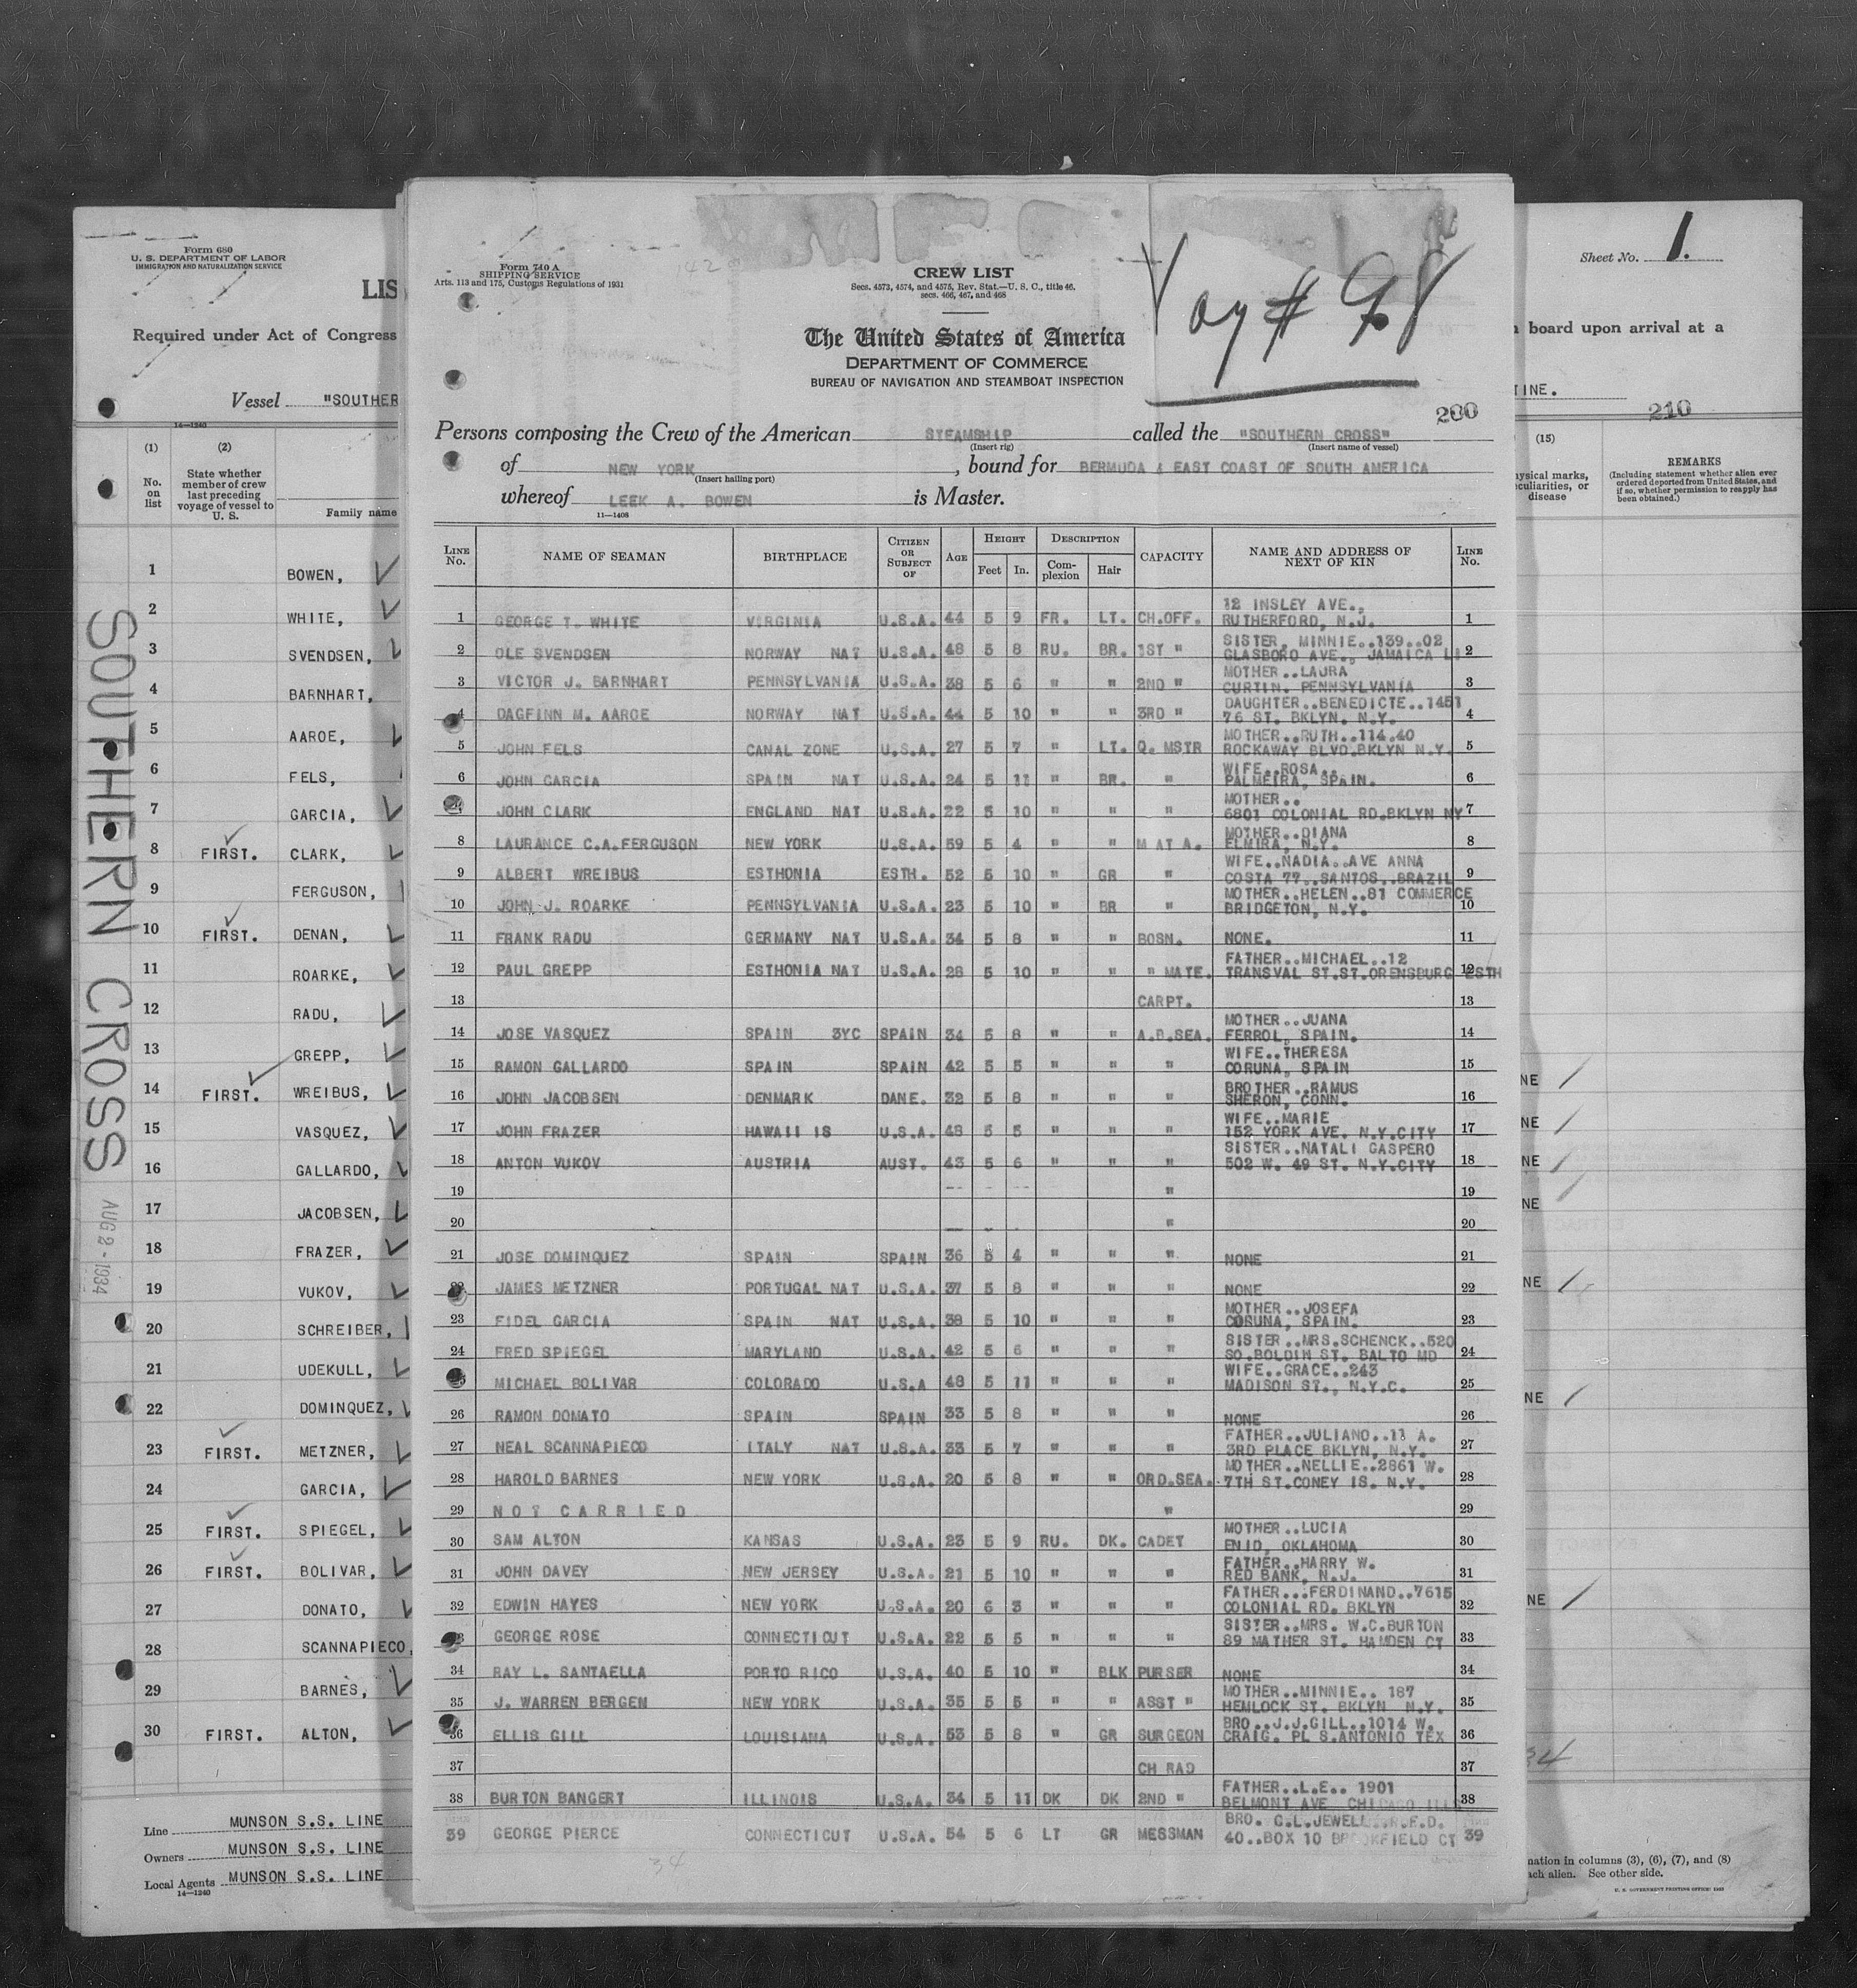 Form 680
U. S. DEPARTMENT OF LABOR
IMMIGRATION AND NATURALIZATION SERVICE
LIS
Required under Act of Congress
Vessel "SOUTHER
14—1240
(1) (2)
No. on list
State whether member of crew last preceding voyage of vessel to U. S.
Family name
1 BOWEN,
2 WHITE,
3 SVENDSEN,
4 BARNHART,
5 AAROE,
6 FELS,
7 GARCIA,
8 FIRST. CLARK,
9 FERGUSON,
10 FIRST. DENAN,
11 ROARKE,
12 RADU,
13 GREPP,
14 FIRST. WREIBUS,
15 VASQUEZ,
16 GALLARDO,
17 JACOBSEN,
18 FRAZER,
19 VUKOV,
20 SCHREIBER,
21 UDEKULL,
22 DOMINQUEZ,
23 FIRST. METZNER,
24 GARCIA,
25 FIRST. SPIEGEL,
26 FIRST. BOLIVAR,
27 DONATO,
28 SCANNAPIECO,
29 BARNES,
30 FIRST. ALTON,
Line MUNSON S.S. LINE
Owners MUNSON S.S. LINE
Local Agents MUNSON S.S. LINE
14—1240
SOUTHERN CROSS AUG 2 - 1934
Form 710 A
SHIPPING SERVICE
Arts. 113 and 175, Customs Regulations of 1931
CREW LIST
Secs. 4573, 4574, and 4575, Rev. Stat.—U. S. C., title 46.
secs. 466, 467, and 468
Voy # 98
The United States of America
DEPARTMENT OF COMMERCE
BUREAU OF NAVIGATION AND STEAMBOAT INSPECTION
200
Persons composing the Crew of the American STEAMSHIP called the "SOUTHERN CROSS"
(Insert rig) (Insert name of vessel)
of NEW YORK, bound for BERMUDA & EAST COAST OF SOUTH AMERICA
(Insert hailing port)
whereof LEEK A. BOWEN is Master.
11—1408
LINE No. NAME OF SEAMAN BIRTHPLACE CITIZEN OR SUBJECT OF AGE HEIGHT Feet In. DESCRIPTION Complexion Hair CAPACITY NAME AND ADDRESS OF NEXT OF KIN LINE No.
1 GEORGE T. WHITE VIRGINIA U.S.A. 44 5 9 FR. LT. CH.OFF. 12 INSLEY AVE., RUTHERFORD, N.J. 1
2 OLE SVENDSEN NORWAY NAT U.S.A. 48 5 8 RU. BR. 1ST " SISTER, MINNIE..139..02 GLASBORO AVE., JAMAICA LI 2
3 VICTOR J. BARNHART PENNSYLVANIA U.S.A. 38 5 6 " " 2ND " MOTHER..LAURA CURTIN. PENNSYLVANIA 3
4 DAGFINN M. AAROE NORWAY NAT U.S.A. 44 5 10 " " 3RD " DAUGHTER..BENEDICTE..1451 76 ST. BKLYN. N.Y. 4
5 JOHN FELS CANAL ZONE U.S.A. 27 5 7 " LT. Q. MSTR MOTHER..RUTH..114.40 ROCKAWAY BLVD.BKLYN N.Y. 5
6 JOHN GARCIA SPAIN NAT U.S.A. 24 5 11 " BR. " WIFE..ROSA.. PALMEIRA, SPAIN. 6
JOHN CLARK ENGLAND NAT U.S.A. 22 5 10 " " " MOTHER.. 6801 COLONIAL RD.BKLYN NY 7
8 LAURANCE C.A.FERGUSON NEW YORK U.S.A. 59 5 4 " " M AT A. MOTHER..DIANA ELMIRA, N.Y. 8
9 ALBERT WREIBUS ESTHONIA ESTH. 52 5 10 " GR " WIFE..NADIA..AVE ANNA COSTA 77..SANTOS..BRAZIL 9
10 JOHN J. ROARKE PENNSYLVANIA U.S.A. 23 5 10 " BR " MOTHER..HELEN..81 COMMERCE BRIDGETON, N.Y. 10
11 FRANK RADU GERMANY NAT U.S.A. 34 5 8 " " BOSN. NONE. 11
12 PAUL GREPP ESTHONIA NAT U.S.A. 28 5 10 " " " MATE. FATHER..MICHAEL..12 TRANSVAL ST.ST.ORENSBURG ESTH 12
13 CARPT. 13
14 JOSE VASQUEZ SPAIN 3YC SPAIN 34 5 8 " " A.B.SEA. MOTHER..JUANA FERROL, SPAIN. 14
15 RAMON GALLARDO SPAIN SPAIN 42 5 5 " " " WIFE..THERESA CORUNA, SPAIN 15
16 JOHN JACOBSEN DENMARK DANE. 32 5 8 " " " BROTHER..RAMUS SHERON, CONN. 16
17 JOHN FRAZER HAWAII IS U.S.A. 48 5 5 " " " WIFE..MARIE 152 YORK AVE. N.Y.CITY 17
18 ANTON VUKOV AUSTRIA AUST. 43 5 6 " " " SISTER..NATALI GASPERO 502 W. 49 ST. N.Y.CITY 18
19 " 19
20 " 20
21 JOSE DOMINQUEZ SPAIN SPAIN 36 5 4 " " " NONE 21
JAMES METZNER PORTUGAL NAT U.S.A. 37 5 8 " " " NONE 22
23 FIDEL GARCIA SPAIN NAT U.S.A. 38 5 10 " " " MOTHER..JOSEFA CORUNA, SPAIN. 23
24 FRED SPIEGEL MARYLAND U.S.A. 42 5 6 " " " SISTER..MRS.SCHENCK..520 SO.BOLDIN ST. BALTO MD 24
MICHAEL BOLIVAR COLORADO U.S.A 48 5 11 " " " WIFE..GRACE..243 MADISON ST., N.Y.C. 25
26 RAMON DONATO SPAIN SPAIN 33 5 8 " " " NONE 26
27 NEAL SCANNAPIECO ITALY NAT U.S.A. 33 5 7 " " " FATHER..JULIANO..11 A. 3RD PLACE BKLYN, N.Y. 27
28 HAROLD BARNES NEW YORK U.S.A. 20 5 8 " " ORD.SEA. MOTHER..NELLIE..2861 W. 7TH ST.CONEY IS. N.Y. 28
29 NOT CARRIED " 29
30 SAM ALTON KANSAS U.S.A. 23 5 9 RU. DK. CADET MOTHER..LUCIA ENID, OKLAHOMA 30
31 JOHN DAVEY NEW JERSEY U.S.A. 21 5 10 " " " FATHER..HARRY W. RED BANK, N.J. 31
32 EDWIN HAYES NEW YORK U.S.A. 20 6 3 " " " FATHER...FERDINAND..7615 COLONIAL RD. BKLYN 32
GEORGE ROSE CONNECTICUT U.S.A. 22 5 5 " " " SISTER..MRS. W.C.BURTON 89 MATHER ST. HAMDEN CT 33
34 RAY L. SANTAELLA PORTO RICO U.S.A. 40 5 10 " BLK PURSER NONE 34
35 J. WARREN BERGEN NEW YORK U.S.A. 35 5 5 " " ASST " MOTHER..MINNIE.. 187 HEMLOCK ST. BKLYN N.Y. 35
36 ELLIS GILL LOUISIANA U.S.A. 53 5 8 " GR SURGEON BRO..J.J.GILL..1014 W. CRAIG. PL S.ANTONIO TEX 36
37 CH RAD 37
38 BURTON BANGERT ILLINOIS U.S.A. 34 5 11 DK DK 2ND " FATHER..L.E.. 1901 BELMONT AVE CHICAGO ILL 38
39 GEORGE PIERCE CONNECTICUT U.S.A. 54 5 6 LT GR MESSMAN BRO. C.L.JEWELL..R.F.D. 40..BOX 10 BROOKFIELD CT 39
34
Sheet No. 1.
board upon arrival at a
TINE.
210
(15)
ysical marks, culiarities, or disease
REMARKS
(Including statement whether alien ever ordered deported from United States, and if so, whether permission to reapply has been obtained.)
NE
NE
NE
NE
NE
NE
NE
34
nation in columns (3), (6), (7), and (8)
ach alien. See other side.
U. S. GOVERNMENT PRINTING OFFICE